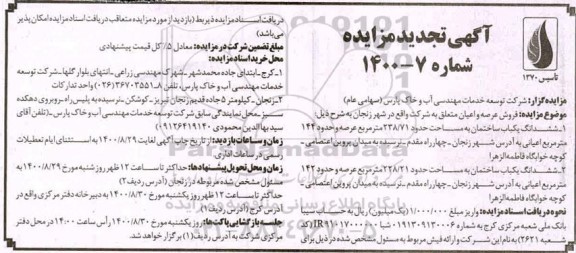 آگهی تجدید مزایده
شماره ۷-۱۴۰۰
تاسیس ۱۳۷۰
مزایده‌گزار: شرکت توسعه خدمات مهندسی آب و خاک پارس (سهامی عام)
موضوع مزایده: فروش عرصه و اعیان متعلق به شرکت واقع در شهر زنجان به شرح ذیل:
۱ـ ششدانگ یکباب ساختمان به مساحت حدود ۲۳۸/۷۱ مترمربع عرصه و حدود ۱۴۴
مترمربع اعیانی به آدرس شهر زنجان ـ چهارراه مقدم ـ نرسیده به میدان پروین اعتصامی ـ
کوچه خوابگاه فاطمه‌الزهرا
۲ـ ششدانگ یکباب ساختمان به مساحت حدود ۲۲۸/۲۱ مترمربع عرصه و حدود ۱۴۲
مترمربع اعیانی به آدرس شهر زنجان ـ چهارراه مقدم ـ نرسیده به میدان پروین اعتصامی ـ
کوچه خوابگاه فاطمه‌الزهرا
نحوه دریافت اسناد مزایده: واریز مبلغ ۱/۰۰۰/۰۰۰ (یک میلیون) ریال به حساب سیبا
بانک ملی شعبه مرکزی کرج به شماره ۰۱۹۱۳۰۹۱۳۰۰۰۶ شبا
شعبه ۲۶۲۱) به نام این شرکت و ارائه فیش مربوط به مسئول مشخص شده در ذیل برای
دریافت اسناد مزایده ذیربط (بازدید از مورد مزایده متعاقب دریافت اسناد مزایده امکان پذیر
می‌باشد)
مبلغ تضمین شرکت در مزایده: معادل ۵٪ کل قیمت پیشنهادی
محل خرید اسناد مزایده:
۱ـ کرج ـ ابتدای جاده محمدشهر ـ شهرک مهندسی زراعی ـ انتهای بلوار گلها ـ شرکت توسعه
خدمات مهندسی آب و خاک پارس، تلفن ۳۶۷۰۳۵۵۱۸(۰۲۶) واحد تدارکات
۲ـ زنجان ـ کیلومتر ۵ جاده قدیم زنجان تبریز ـ کوشکن ـ نرسیده به پلیس راه ـ روبروی دهکده
سبز ـ محل نمایندگی سابق شرکت توسعه خدمات مهندسی آب و خاک پارس ـ (تلفن آقای
سید بهاالدین محمودی ۰۹۱۲۶۴۱۹۱۴۰)
زمان و ساعات بازدید: از تاریخ چاپ آگهی لغایت ۱۴۰۰/۸/۲۹ به استثنای ایام تعطیلات
رسمی در ساعات اداری
زمان و محل تحویل پیشنهادها: حداکثر تا ساعت ۱۲ ظهر روز شنبه مورخ ۱۴۰۰/۸/۲۹ به
مسئول مشخص شده مربوطه در زنجان (آدرس ردیف ۲)
حداکثر تا ساعت ۱۲ ظهر روز یکشنبه مورخ ۱۴۰۰/۸/۳۰ به دبیرخانه دفتر مرکزی واقع در
آدرس کرج (آدرس ردیف ۱)
جلسه بازگشایی پاکت‌ها: روز یکشنبه مورخ ۱۴۰۰/۸/۳۰ رأس ساعت ۱۴۰۰ در محل دفتر
مرکزی شرکت به آدرس ردیف (۱) برگزار خواهد شد.